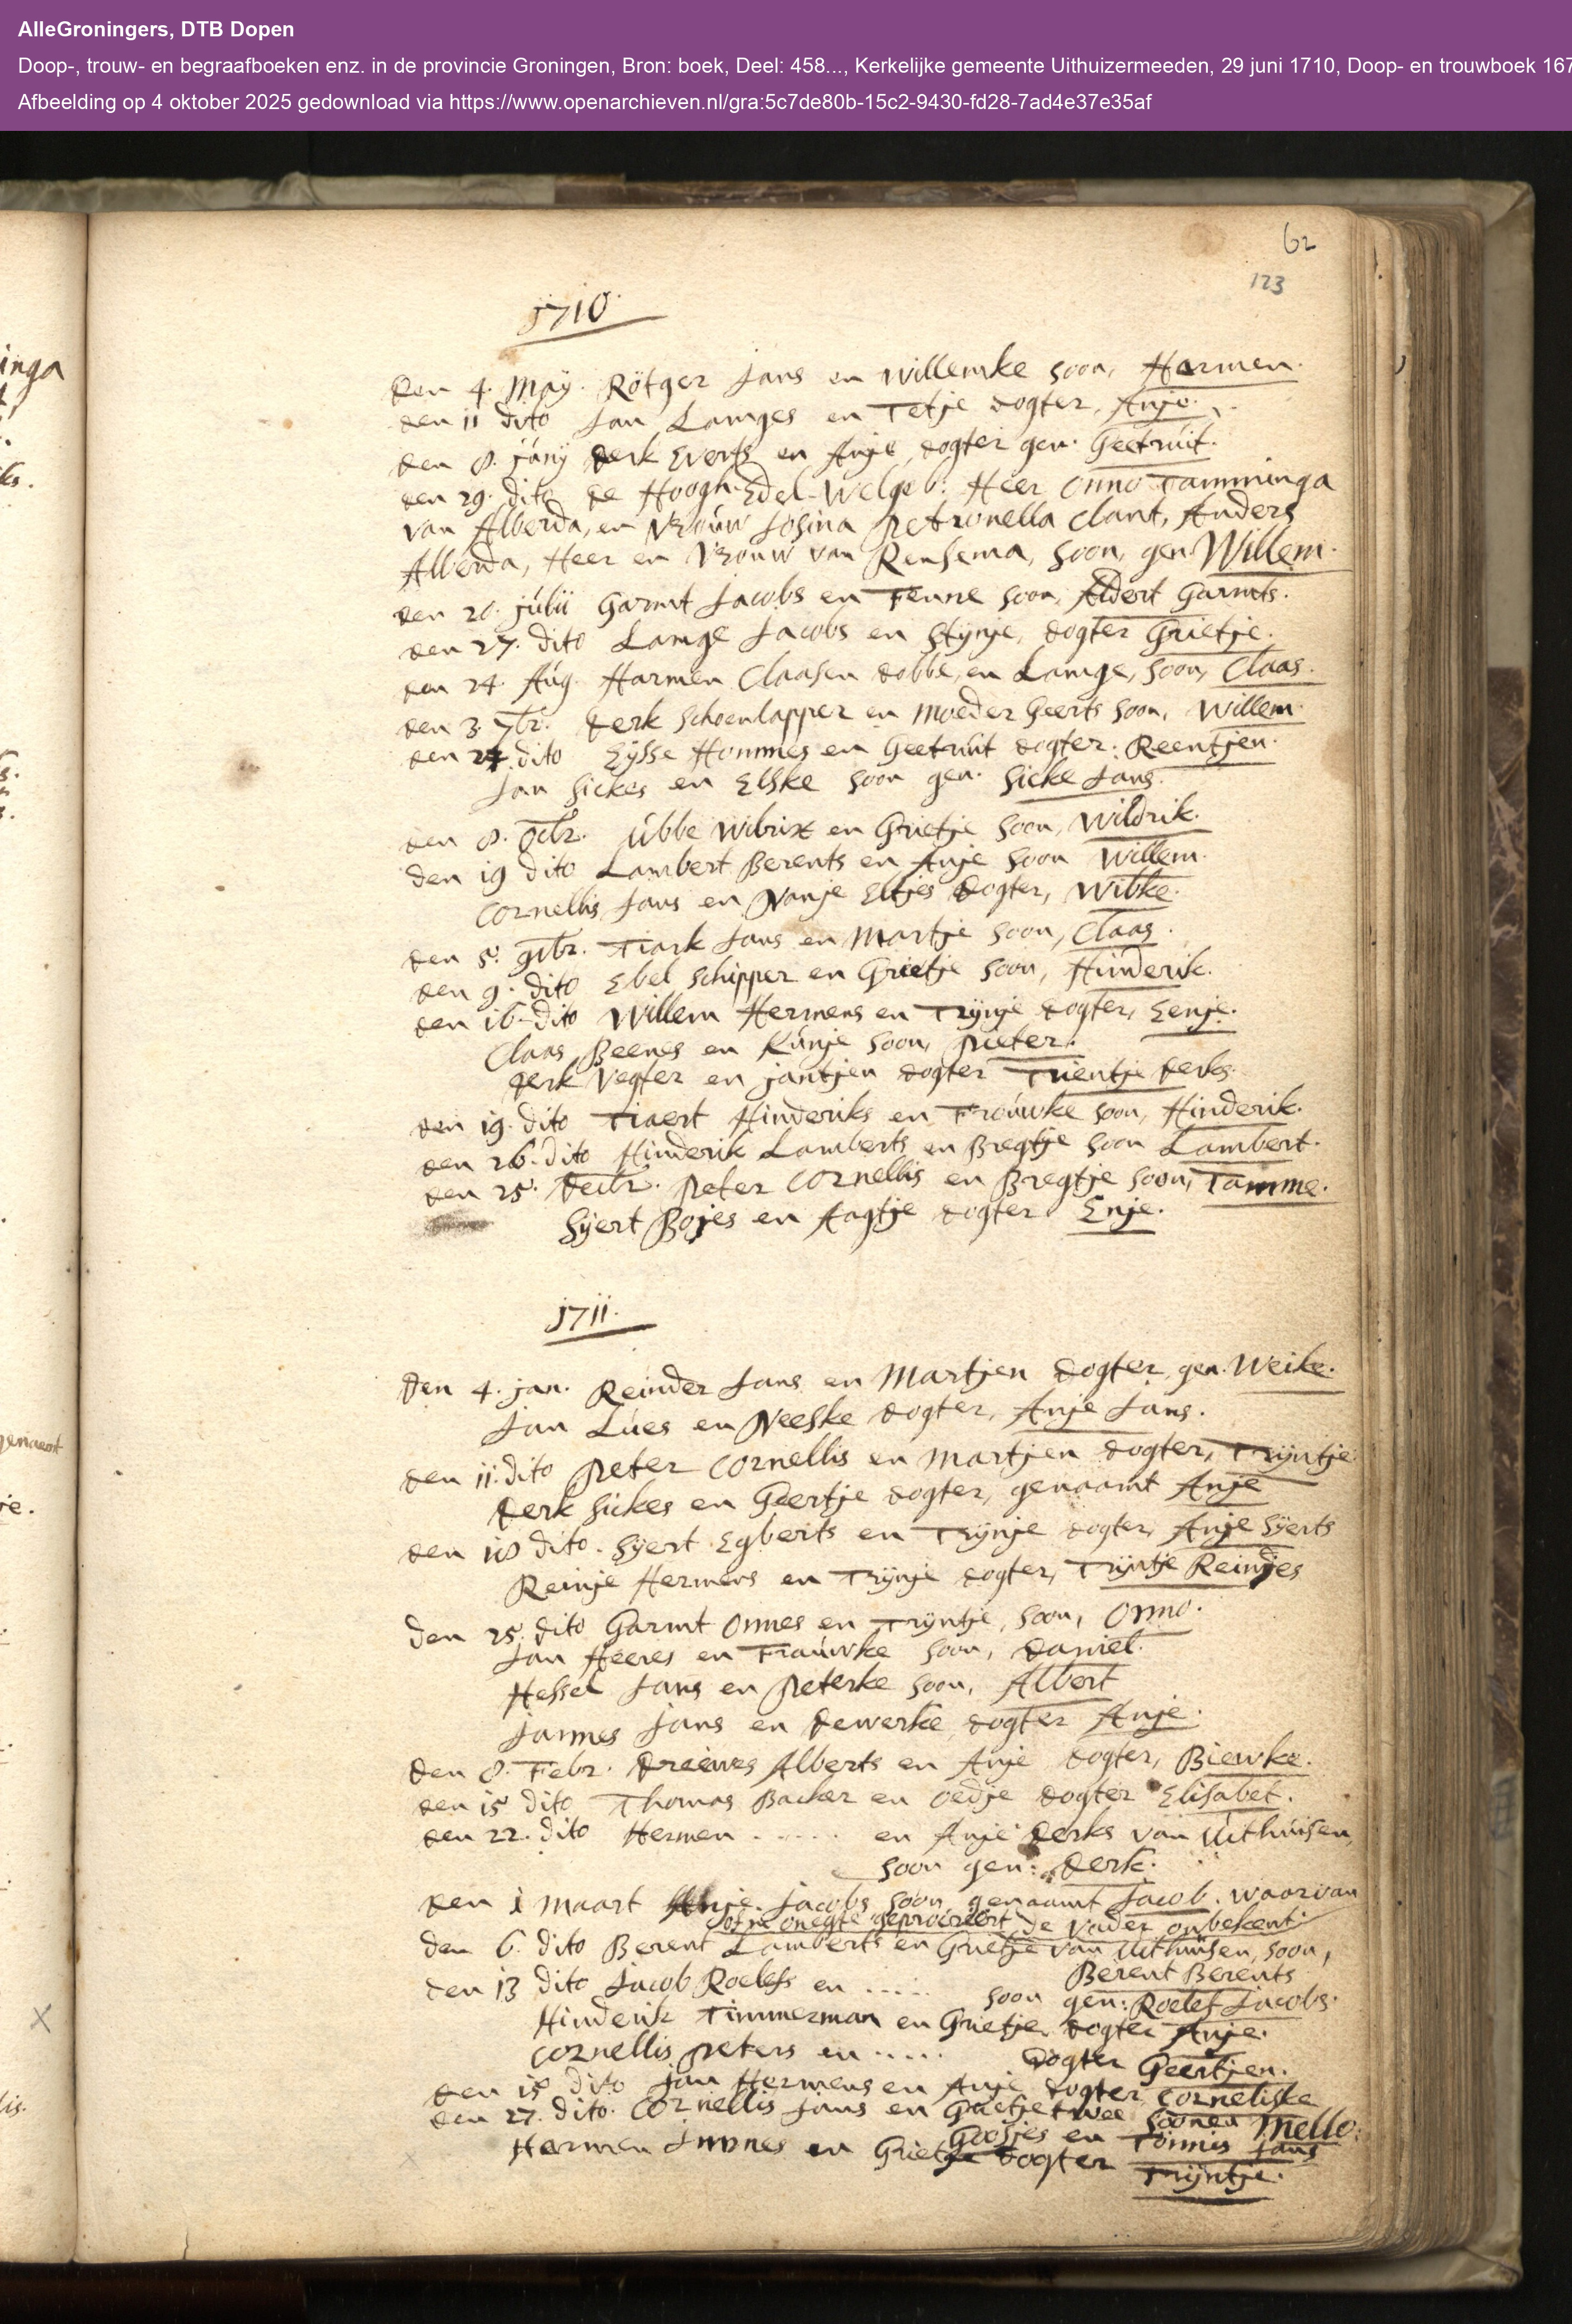 AlleGroningers, DTB Dopen
Doop-, trouw- en begraafboeken enz. in de provincie Groningen, Bron: boek, Deel: 458..., Kerkelijke gemeente Uithuizermeeden, 29 juni 1710, Doop- en trouwboek 167
Afbeelding op 4 oktober 2025 gedownload via https://www.openarchieven.nl/gra:5c7de80b-15c2-9430-fd28-7ad4e37e35af
62
123
inga
1710.
den 4. Maÿ. Rötger Jans en Willemke soon, Harmen.
den 11 dito Jan Lamges en Tetje dogter, Anje.
den 8. junÿ Derk Everts en Anje dogter gen. Geetruit.
den 29. dito de Hoogh-Edel-Welgeb. Heer Onno Tamminga
van Alberda, en Vrouw Josina Petronella Clant, Anders
Alberda, Heer en Vrouw van Rensema, soon, gen. Willem.
den 20. julii Garmt Jacobs en Fenne soon, Aldert Garmts.
den 27. dito Lamge Jacobs en Stÿnje, dogter Grietje.
den 24. Aug. Harmen Claasen dobbe, en Lamge, soon, Claas.
den 3. 7br. Derk Schoenlapper en Moeder Geerts soon, Willem.
den 24. dito Eÿsse Hommes en Geetruit dogter. Reentjen.
Jan Sickes en Elske soon gen. Sicke Jans.
den 8. Octbr. Ubbe Wibrix en Grietje soon, Wildrik.
den 19 dito Lambert Berents en Anje soon Willem.
Cornellis Jans en Nanje Eltjes dogter, Wibke.
den 5. 9tbr. Tiark Jans en Martje soon, Claas.
den 9. dito Ebel Schipper en Grietje soon, Hinderik.
den 16. dito Willem Hermens en Trÿnje dogter, Eenje.
Claas Beenes en Kunje soon, Pieter.
Derk Vegter en jantjen dogter Trientje Derks.
den 19. dito Tiaert Hinderiks en Frouwke soon, Hinderik.
den 26. dito Hinderik Lamberts en Bregtje soon Lambert.
den 25. Decbr. Peter Cornellis en Bregtje soon, Tamme.
Sÿert Bojes en Aagtje dogter Enje.
1711.
den 4. jan. Reinder Jans en Martjen dogter, gen. Weike.
Jan Lues en Neeske dogter, Anje Jans.
den 11. dito Peter Cornellis en Martjen dogter, Trÿntje
Derk Sickes en Geertje dogter, genaamt Anje
den 18 dito. Sÿert Egberts en Trÿnje dogter, Anje Sÿerts
Reinje Hermens en Trÿnje dogter, Trÿntje Reindjes
den 25. dito Garmt Onnes en Trÿntje, soon, Onno.
Jan Heeres en Frauwke soon, Daniel.
Hessel Jans en Peterke soon, Albert
Jannes Jans en Dewerke dogter Anje.
den 8. Febr. Dreewes Alberts en Anje dogter, Biewke.
den 15 dito Thomas Backer en Oedje dogter Elisabet.
den 22. dito Hermen ...... en Anje Derks van Uithuisen,
soon gen: Derk.
den 1 Maart Jacobs soon genaamt Jacob. waarvan
de Vader onbekent
den 6. dito Berent Lamberts en Grietje van Uithuisen, soon,
Berent Berents
den 13 dito Jacob Roelefs en ..... soon gen: Roelef Jacobs.
Hinderik Timmerman en Grietje dogter Anje.
Cornellis Peters en ..... Dogter Geertjen.
den 15 dito Jan Hermens en Anje dogter Corneliske
den 27. dito. Cornellis Jans en Grietje twee soonen Mello.
Goosjes en Tönnis Jans
Harmen en Grietje dogter Trÿntje.